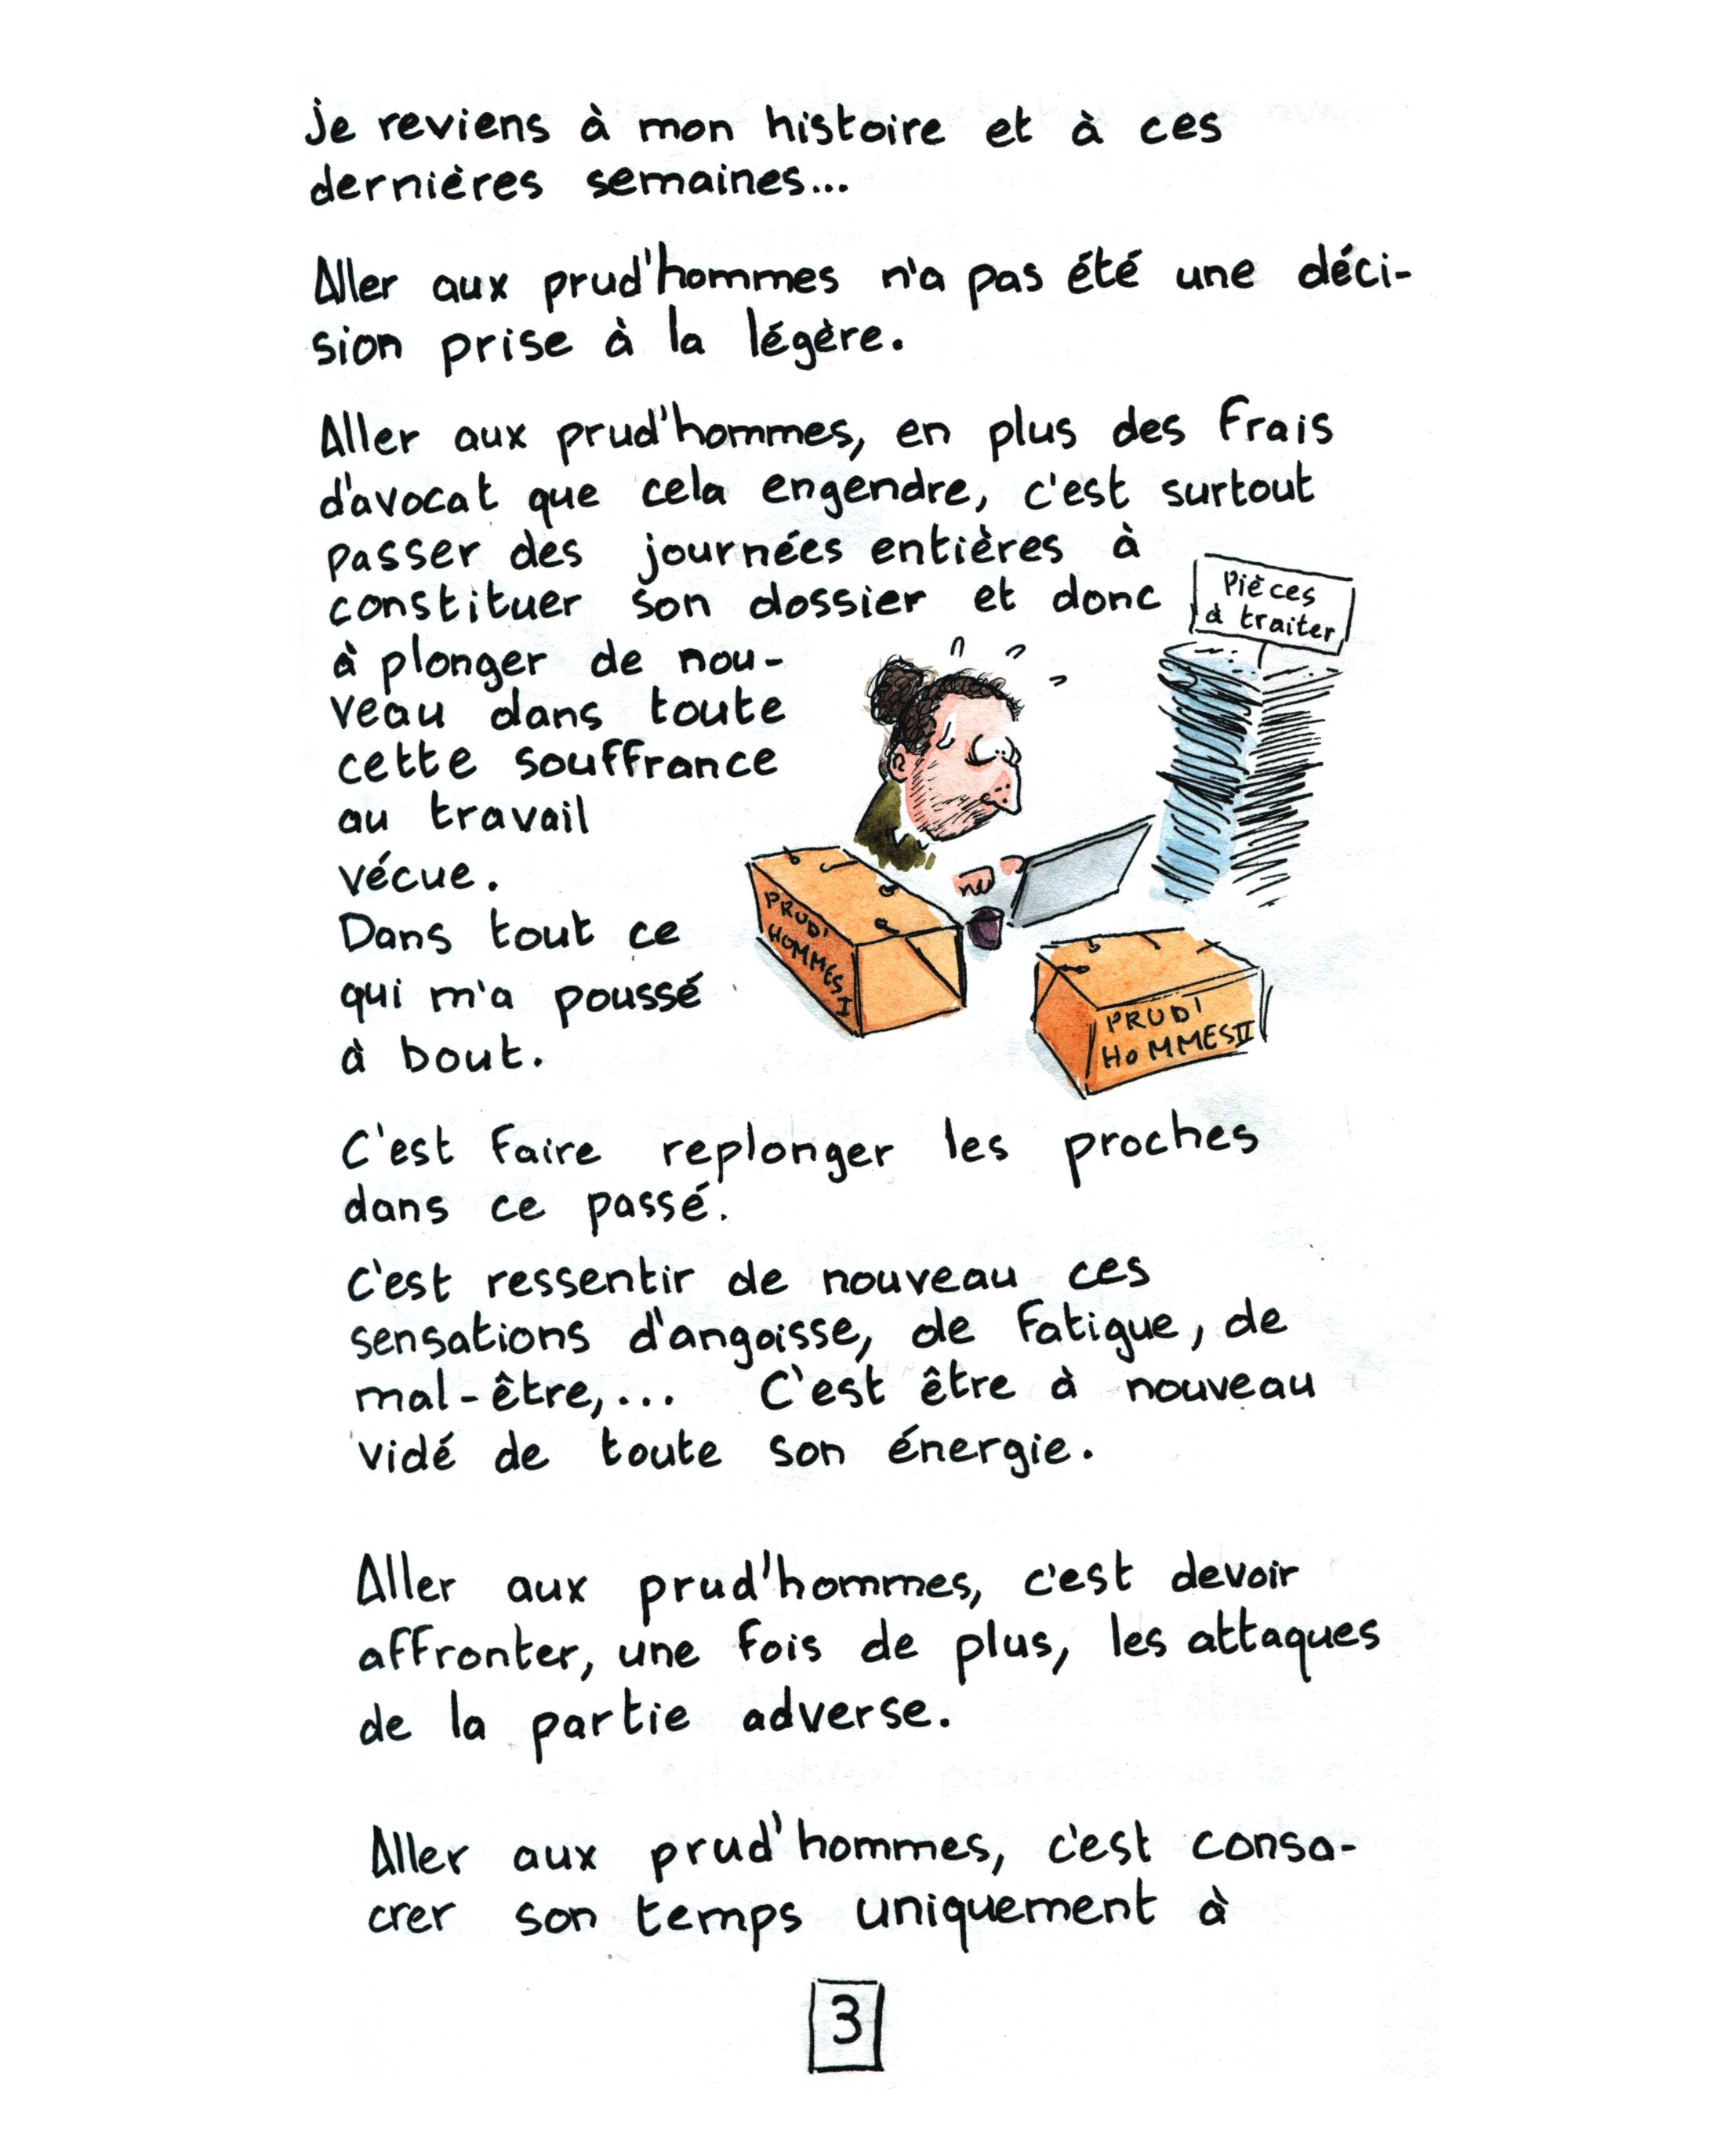 je reviens à mon histoire et à ces
dernières semaines...
Aller aux prud'hommes n'a pas été une déci-
sion prise à la légère.
Aller aux prud'hommes, en plus des frais
d'avocat que cela engendre, c'est surtout
passer des journées entières à
constituer son dossier et donc
à plonger de nou-
veau dans toute
cette souffrance
au travail
vécue.
Dans tout ce
qui m'a poussé
à bout.
Pièces
à traiter
PRUD'
HOMMES I
PRUD'
HOMMES II
C'est faire replonger les proches
dans ce passé.
C'est ressentir de nouveau ces
sensations d'angoisse, de fatigue, de
mal-être,... C'est être à nouveau
vidé de toute son énergie.
Aller aux prud'hommes, c'est devoir
affronter, une fois de plus, les attaques
de la partie adverse.
Aller aux prud'hommes, c'est consa-
crer son temps uniquement à
3